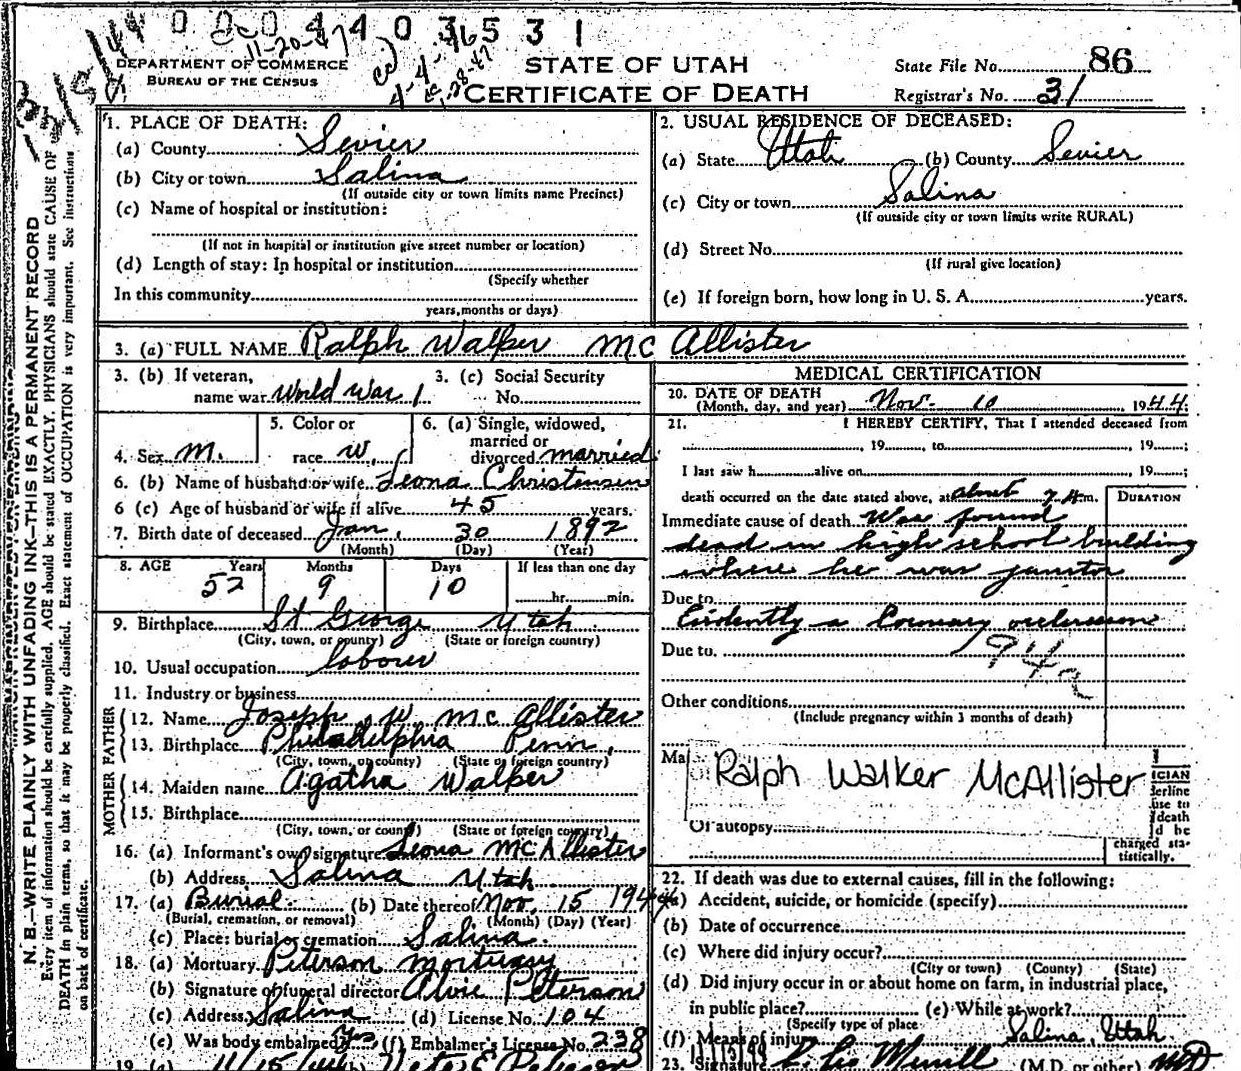 0 0 0 4 4 0 3 5 3 1
11-20-47
DEPARTMENT OF COMMERCE
BUREAU OF THE CENSUS
STATE OF UTAH
CERTIFICATE OF DEATH
State File No. 86
Registrar's No. 31
N. B.—WRITE PLAINLY WITH UNFADING INK—THIS IS A PERMANENT RECORD
Every item of information should be carefully supplied. AGE should be stated EXACTLY. PHYSICIANS should state CAUSE OF
DEATH in plain terms, so that it may be properly classified. Exact statement of OCCUPATION is very important. See instructions
on back of certificate.
1. PLACE OF DEATH:
(a) County Sevier
(b) City or town Salina
(If outside city or town limits name Precinct)
(c) Name of hospital or institution:
(If not in hospital or institution give street number or location)
(d) Length of stay: In hospital or institution
(Specify whether
In this community
years, months or days)
2. USUAL RESIDENCE OF DECEASED:
(a) State Utah (b) County Sevier
(c) City or town Salina
(If outside city or town limits write RURAL)
(d) Street No.
(If rural give location)
(e) If foreign born, how long in U. S. A. years.
3. (a) FULL NAME Ralph Walker McAllister
3. (b) If veteran,
name war World War 1
3. (c) Social Security
No.
4. Sex M.
5. Color or
race W.
6. (a) Single, widowed,
married or
divorced married
6. (b) Name of husband or wife Leona Christensen
6 (c) Age of husband or wife if alive 45 years.
7. Birth date of deceased Jan. 30 1892
(Month) (Day) (Year)
8. AGE Years Months Days If less than one day
52 9 10 hr. min.
9. Birthplace St George Utah
(City, town, or county) (State or foreign country)
10. Usual occupation laborer
11. Industry or business
FATHER
12. Name Joseph W. McAllister
13. Birthplace Philadelphia Penn.
(City, town, or county) (State or foreign country)
MOTHER
14. Maiden name Agatha Walker
15. Birthplace
(City, town, or county) (State or foreign country)
16. (a) Informant's own signature Leona McAllister
(b) Address Salina Utah
17. (a) Burial (b) Date thereof Nov. 15 1944
(Burial, cremation, or removal) (Month) (Day) (Year)
(c) Place: burial or cremation Salina
18. (a) Mortuary Peterson Mortuary
(b) Signature of funeral director Alvie Peterson
(c) Address Salina (d) License No. 104
(e) Was body embalmed? (f) Embalmer's License No. 238
19. (a) 11/15/44
MEDICAL CERTIFICATION
20. DATE OF DEATH
(Month, day, and year) Nov. 10 1944
21. I HEREBY CERTIFY, That I attended deceased from
, 19 , to , 19 ;
I last saw h alive on , 19 ;
death occurred on the date stated above, at about 7 A. m.
DURATION
Immediate cause of death Was found
dead in high school building
where he was janitor
Due to
Evidently a Coronary occlusion
Due to. 94a
Other conditions
(Include pregnancy within 3 months of death)
Ma
Ralph Walker McAllister
ICIAN
derline
use to
death
d be
charged sta-
tistically.
Of autopsy
22. If death was due to external causes, fill in the following:
(a) Accident, suicide, or homicide (specify)
(b) Date of occurrence
(c) Where did injury occur?
(City or town) (County) (State)
(d) Did injury occur in or about home on farm, in industrial place,
in public place? (e) While at work?
(Specify type of place
(f) Means of injury Salina, Utah
23. Signature Merrill (M.D. or other) MD